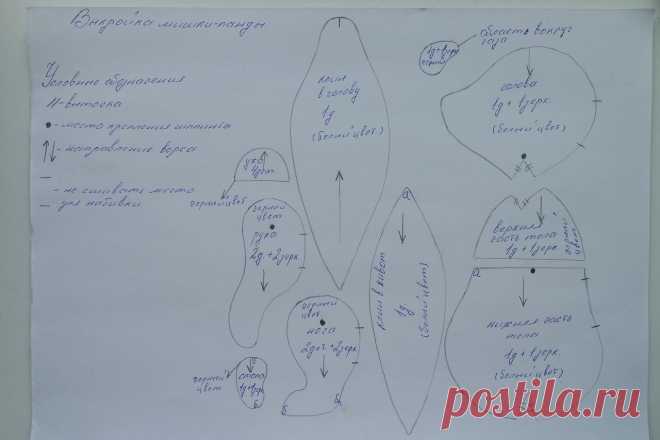 Выкройка мишки-панды
Условные обозначения
И-вытачка
- место крепления шплинта
- направление ворса
- не сшивать место
для набивки
клин
в голову
1д
(белый цвет)
ухо
4дет
черный цвет
черный
цвет
рука
2д + 2зерк.
черный
цвет
нога
2дет + 2зерк.
б
б
черный
цвет
стопа
1д+1зерк
б
а
клин в живот
1д
(белый цвет)
1д+1зерк
черный
область вокруг
глаза
голова
1д + 1зерк.
(белый цвет)
верхняя
часть тела
1д + 1зерк.
черный
цвет
а
нижняя часть
тела
1д + 1зерк.
(белый цвет)
postila.ru